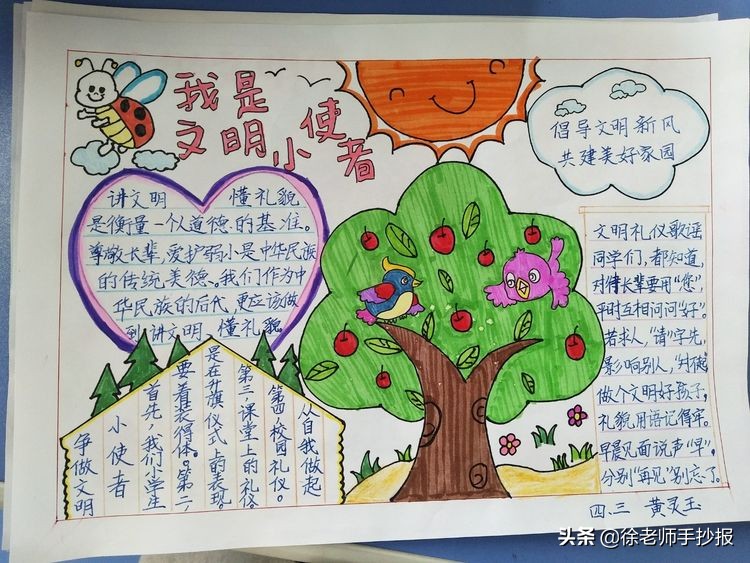 我是
文明小使者
倡导文明新风
共建美好家园
讲文明 懂礼貌
是衡量一个人道德的基准。
尊敬长辈,爱护弱小是中华民族
的传统美德。我们作为中
华民族的后代,更应该做
到讲文明,懂礼貌。
争做文明
小使者
首先,我们小学生
要着装得体。第二,
是在升旗仪式上的表现。
第三,课堂上的礼仪
第四,校园礼仪。
从自我做起
文明礼仪歌谣
同学们,都知道,
对待长辈要用"您",
平时互相问问"好"。
若求人,"请"字先,
影响别人,"对不起"
做个文明好孩子,
礼貌用语记得牢。
早晨见面说声"早",
分别"再见"别忘了。
四.三 黄灵玉
头条 @徐老师手抄报